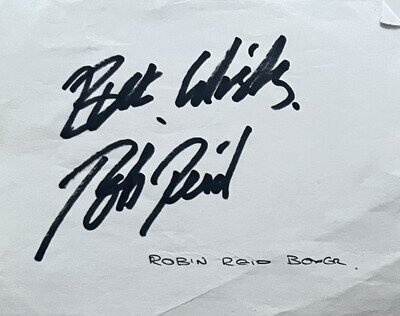 Best Wishes.
Rob Reid
ROBIN REID BOXER.